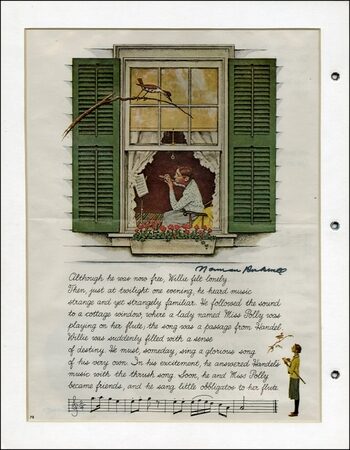 Norman Rockwell
Although he was now free, Willie felt lonely.
Then, just at twilight one evening, he heard music
strange and yet strangely familiar. He followed the sound
to a cottage window, where a lady named Miss Polly was
playing on her flute; the song was a passage from Handel.
Willie was suddenly filled with a sense
of destiny. He must, someday, sing a glorious song
of his very own. In his excitement, he answered Handel's
music with the thrush song. Soon, he and Miss Polly
became friends, and he sang little obbligatos to her flute.
70